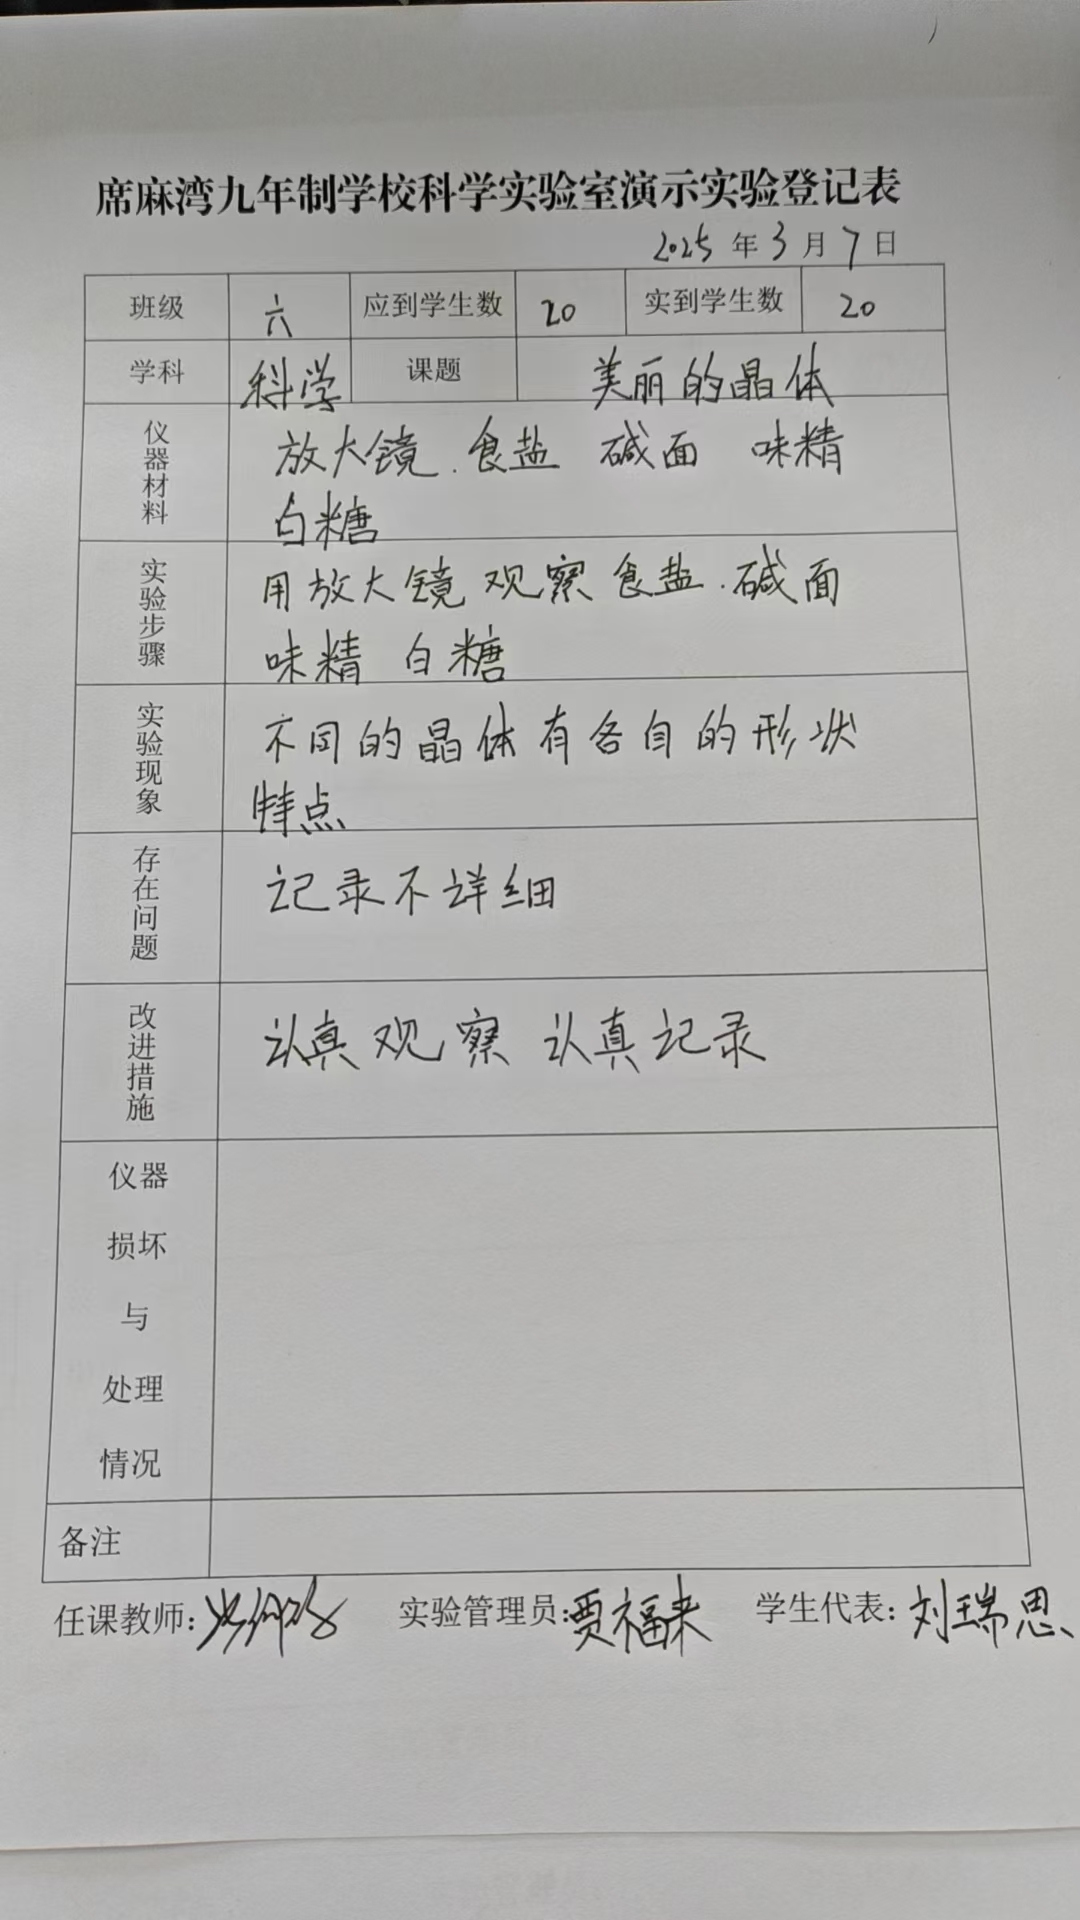 席麻湾九年制学校科学实验室演示实验登记表
2025 年 3 月 7 日
班级 六 应到学生数 20 实到学生数 20
学科 科学 课题 美丽的晶体
仪器材料 放大镜.食盐 碱面 味精
白糖
实验步骤 用放大镜观察食盐.碱面
味精 白糖
实验现象 不同的晶体有各自的形状
特点
存在问题 记录不详细
改进措施 认真观察 认真记录
仪器
损坏
与
处理
情况
备注
任课教师: 实验管理员:贾福来 学生代表:刘瑞思